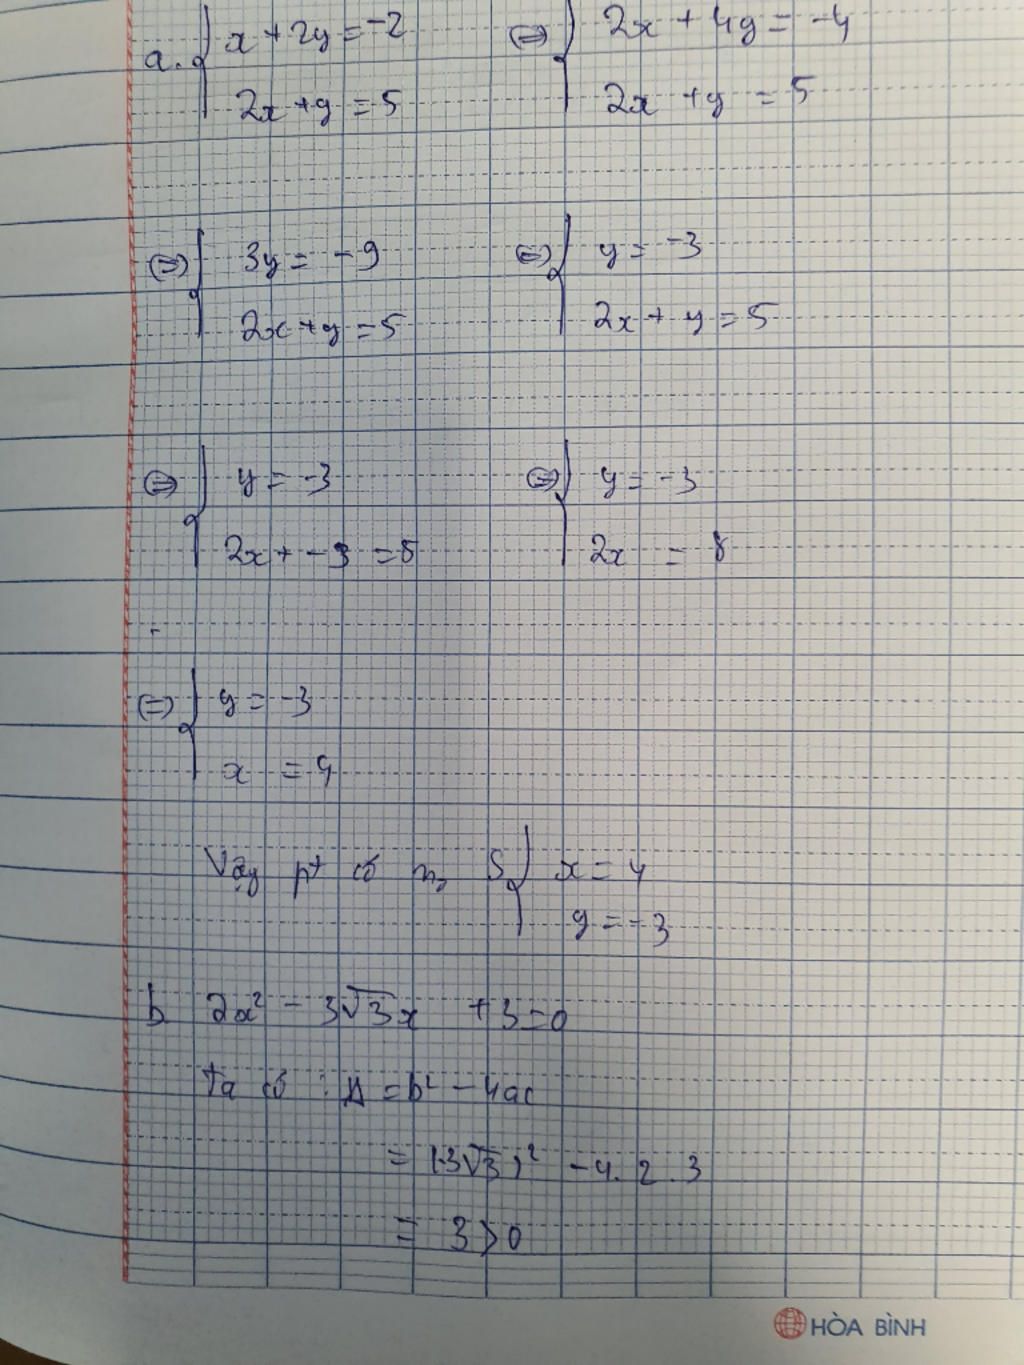 a. { x + 2y = -2 (=) { 2x + 4y = -4
2x + y = 5 2x + y = 5
(=) { 3y = -9 (=) { y = -3
2x + y = 5 2x + y = 5
(=) { y = -3 (=) { y = -3
2x + -3 = 5 2x = 8
(=) { y = -3
x = 4
Vậy pt có n0 S { x = 4
y = -3
b. 2x² - 3√3x + 3 = 0
Ta có : Δ = b² - 4ac
= (-3√3)² - 4. 2 . 3
= 3 > 0
HÒA BÌNH